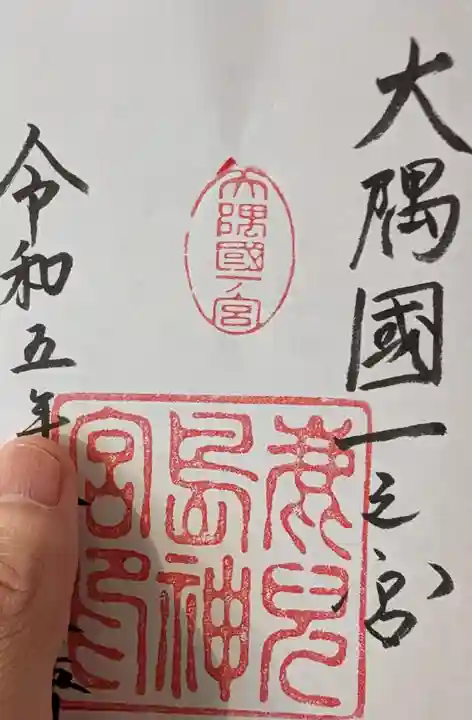 大隅國一之宮
大隅國一ノ宮
鹿兒
島神
宮印
令和五年